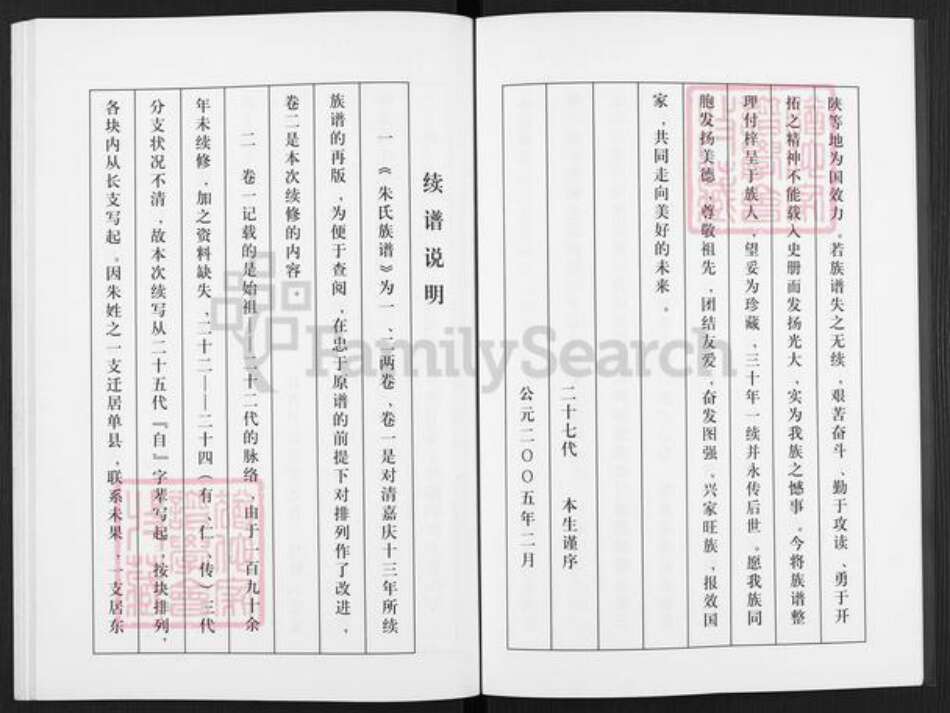 陕等地为国效力。若族谱失之无续，艰苦奋斗、勤于攻读、勇于开
拓之精神不能载入史册而发扬光大、实为我族之憾事。今将族谱整
理付梓呈于族人，望妥为珍藏、三十年一续并永传后世。愿我族同
胞发扬美德，尊敬祖先，团结友爱，奋发图强，兴家旺族，报效国
家，共同走向美好的未来。
二十七代 本生谨序
公元二〇〇五年二月
续谱说明
一 《朱氏族谱》为一、二两卷、卷一是对清嘉庆十三年所续
族谱的再版，为便于查阅，在忠于原谱的前提下对排列作了改进，
卷二是本次续修的内容。
二 卷一记载的是始祖——二十二代的脉络，由于一百九十余
年未续修，加之资料缺失、二十二——二十四（有、仁、传）三代
分支状况不清，故本次续写从二十五代『自』字辈写起，按块排列，
各块内从长支写起。因朱姓之一支迁居单县，联系未果，一支居东
FamilySearch